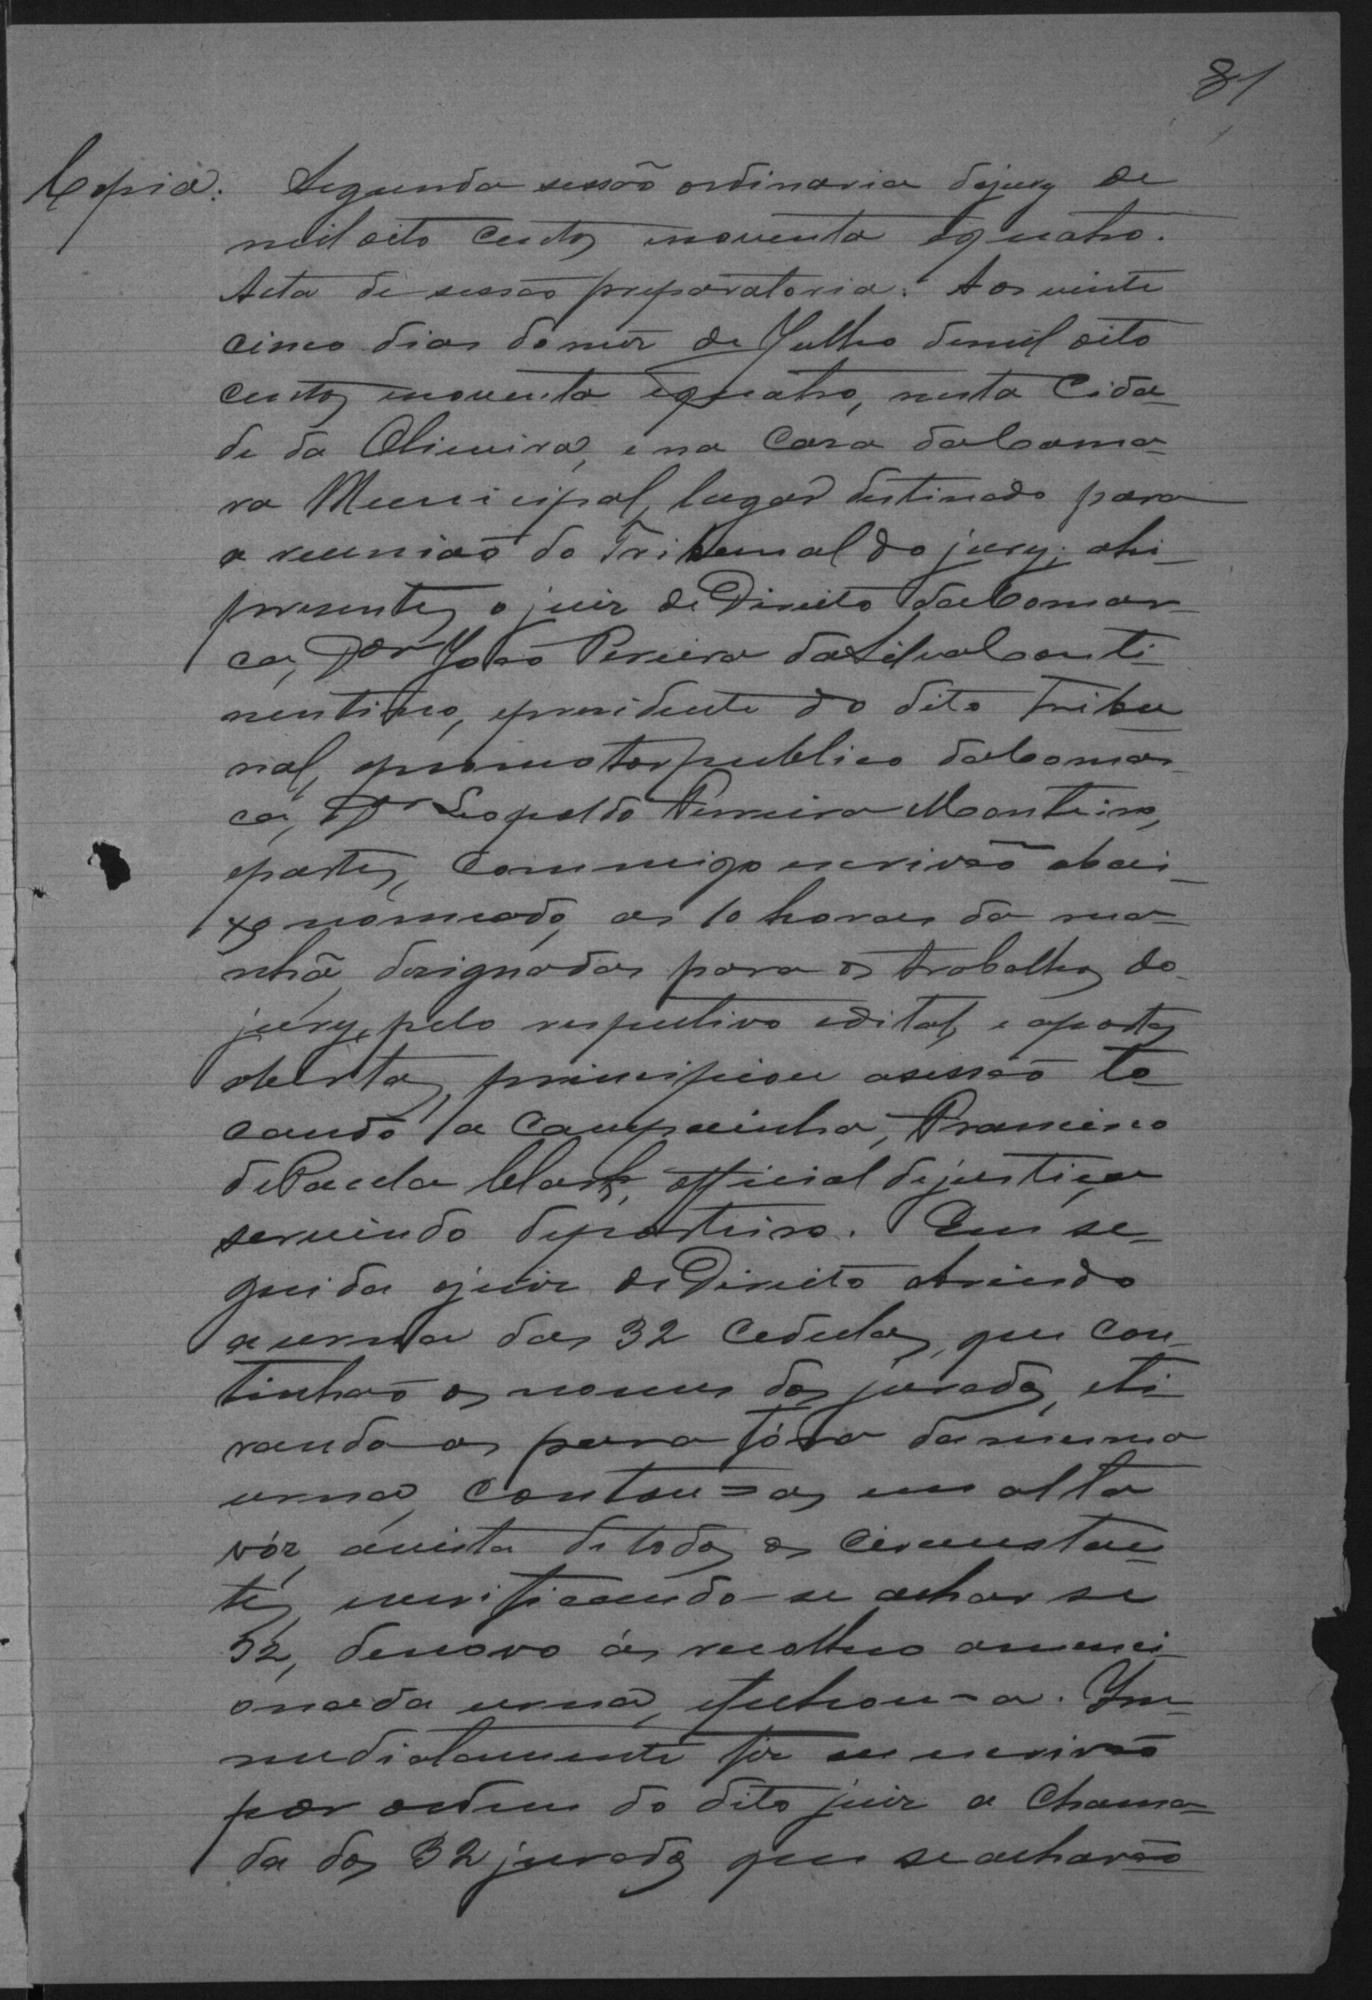 81
Copia. Segunda sessão ordinaria dojury de
mil oito centos enoventa equatro.
Acta de sessão preparatoria. Aos vinte
cinco dias domez de Julho demil oito
centos enoventa equatro, nesta Cida-
de da Oliveira, e na Casa daCama-
ra Municipal, lugar destinado para
a reunião do Tribunal do jury; ahi
presentes o juiz de Direito daComar-
ca, Dor João Pereira daSilvaConti-
nentino, epresidente do dito Tribu
nal, opromotorpublico daComar-
ca, Dr Leopoldo Ferreira Monteiro,
epartes, commigo escrivão abai-
xo nomeado, as 10 horas da ma-
nhã, designadas para os trabalhos do
jury, pelo respectivo edital, e aportas
abertas, principiou asessão to
cando a campainha, Francisco
dePaula Clark, official dejustiça
servindo deporteiro. Em se-
guida ojuiz de Direito abrindo
aurna das 32 cedulas, que con-
tinhão os nomes dos jurados, eti-
rando as para fóra damesma
urna, contou=as em alta
vóz, ávista detodos os circunstan-
tes, everificando-se achar se
32, denovo ás recolheo amenci-
onada urna, efechou=a. Im-
mediatamente fiz eu escrivão
por ordem do dito juiz a chama-
da dos 32 jurados que seacharão